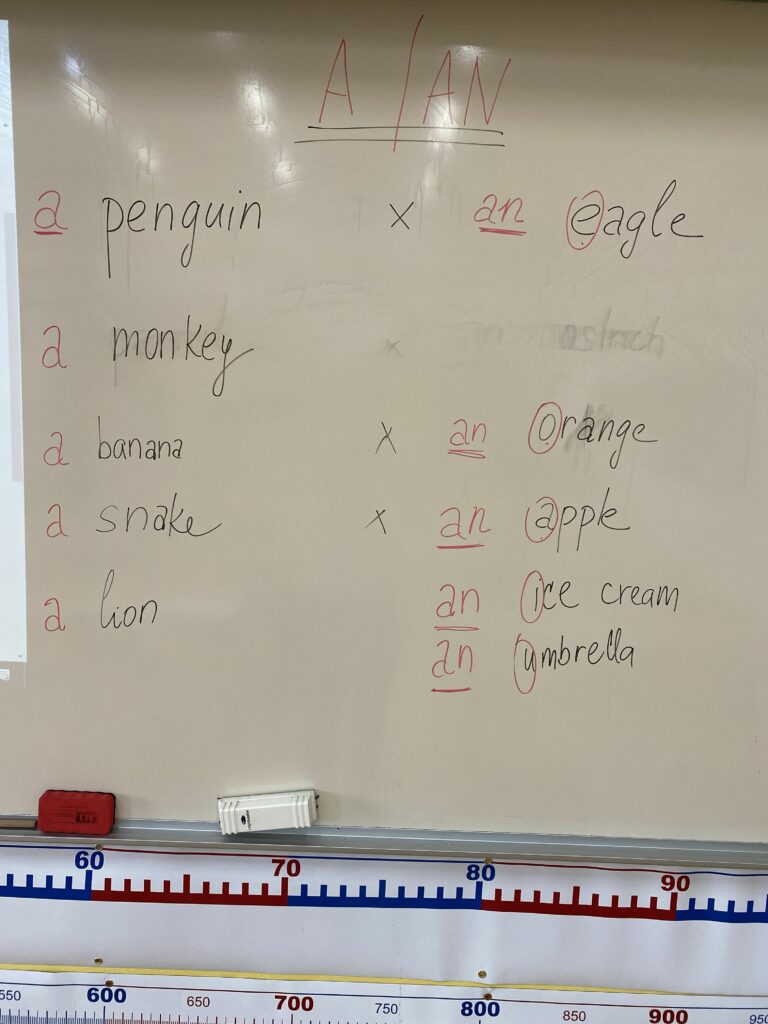 A / AN
a penguin x an eagle
a monkey x ostrich
a banana x an orange
a snake x an apple
a lion an ice cream
an umbrella
60 70 80 90
550 600 650 700 750 800 850 900 950